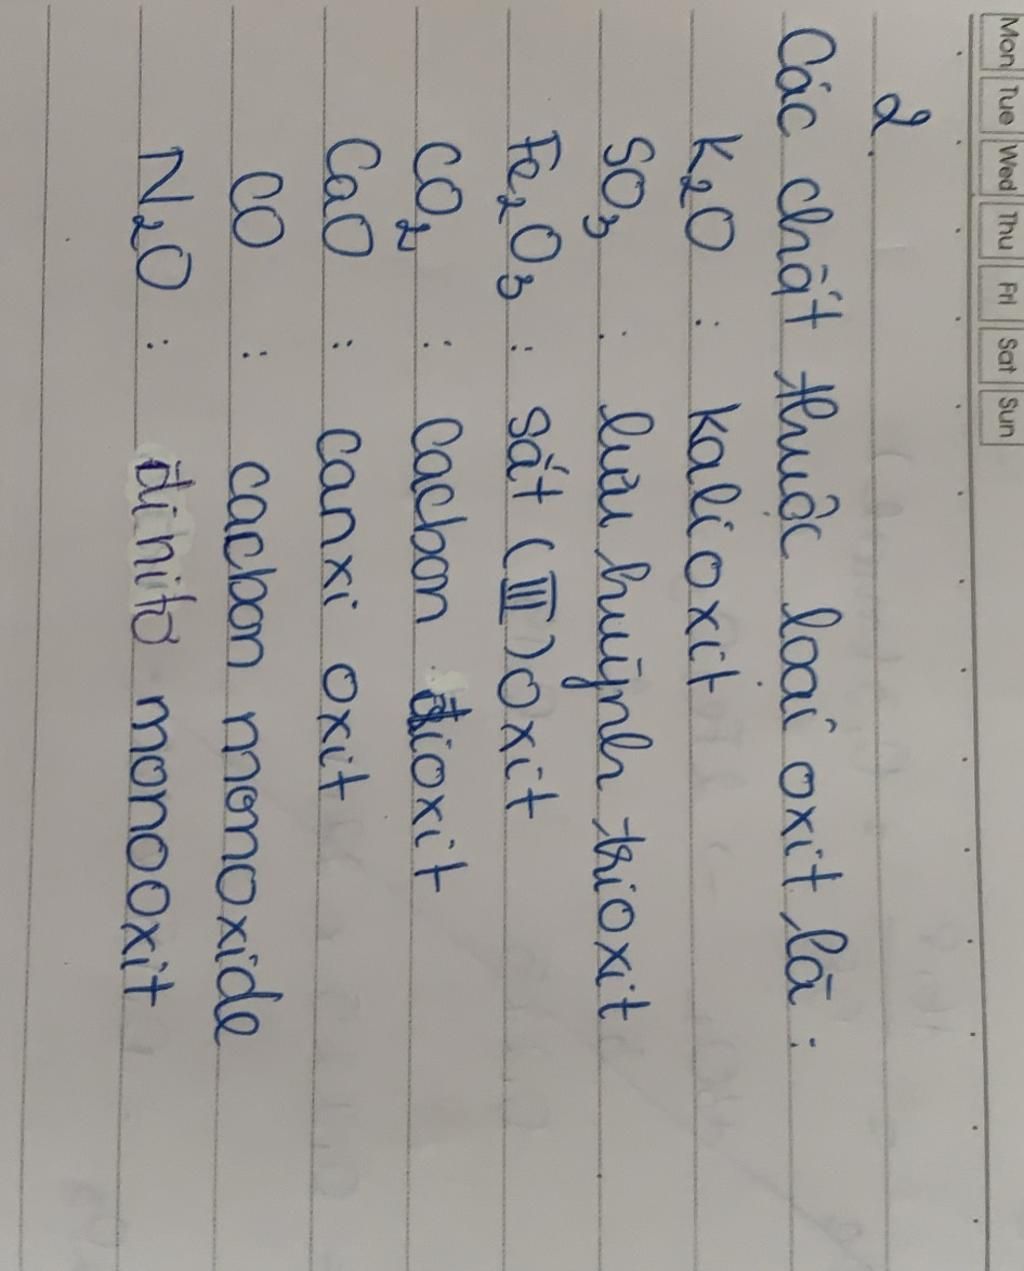 Mon Tue Wed Thu Fri Sat Sun
2.
Các chất thuộc loại oxit là :
K₂O : kali oxit
SO₃ : lưu huỳnh trioxit
Fe₂O₃ : sắt (III) oxit
CO₂ : cacbon đioxit
CaO : canxi oxit
CO : cacbon monoxide
N₂O : đinitơ monooxit